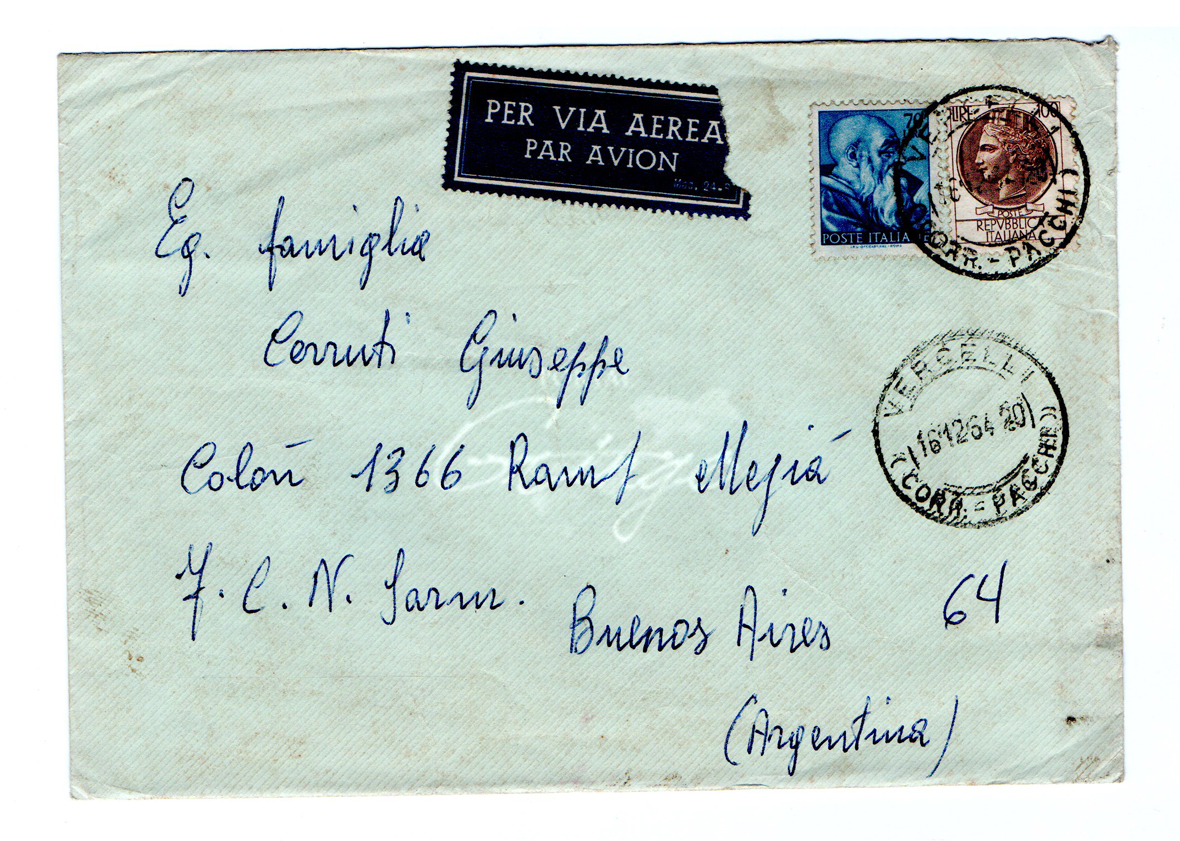 PER VIA AEREA
PAR AVION
Mod. 24-B
70
POSTE ITALIA
LIRE 100
POSTE
REPVBBLICA
ITALIANA
CORR. - PACCHI)
VERCELLI
16 12 64 20
(CORR. - PACCHI)
Eg. famiglia
Cerruti Giuseppe
Colón 1366 Mejiá
F. C. N. Sarm.
Buenos Aires 64
(Argentina)